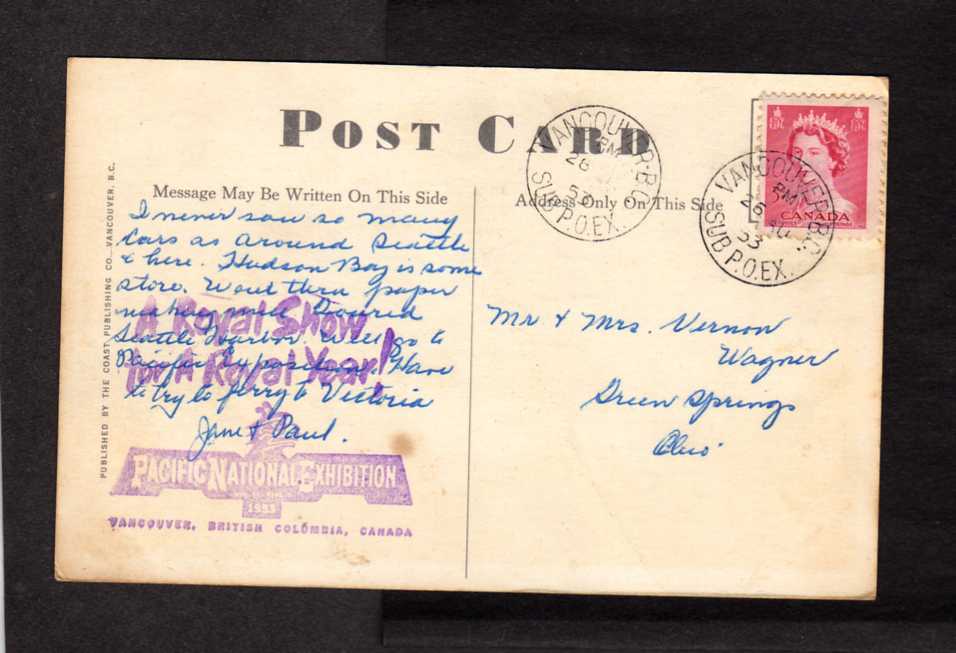 POST CARD
Message May Be Written On This Side
Address Only On This Side
I never saw so many
cars as around Seattle
& here. Hudson Bay is some
store. Went thru paper
making mill. Toured
Seattle Harbor. Will go to
Pacific Exposition. Have
to try to ferry to Victoria
Jane & Paul.
A Royal Show
for A Royal Year!
PACIFIC NATIONAL EXHIBITION
1953
VANCOUVER, BRITISH COLUMBIA, CANADA
PUBLISHED BY THE COAST PUBLISHING CO., VANCOUVER, B.C.
VANCOUVER·B.C.
PM
26
53
SUB P.O.EX.
VANCOUVER·B.C.
PM
26 AU
53
SUB P.O.EX.
CANADA
Mr & Mrs. Vernon
Wagner
Green Springs
Ohio